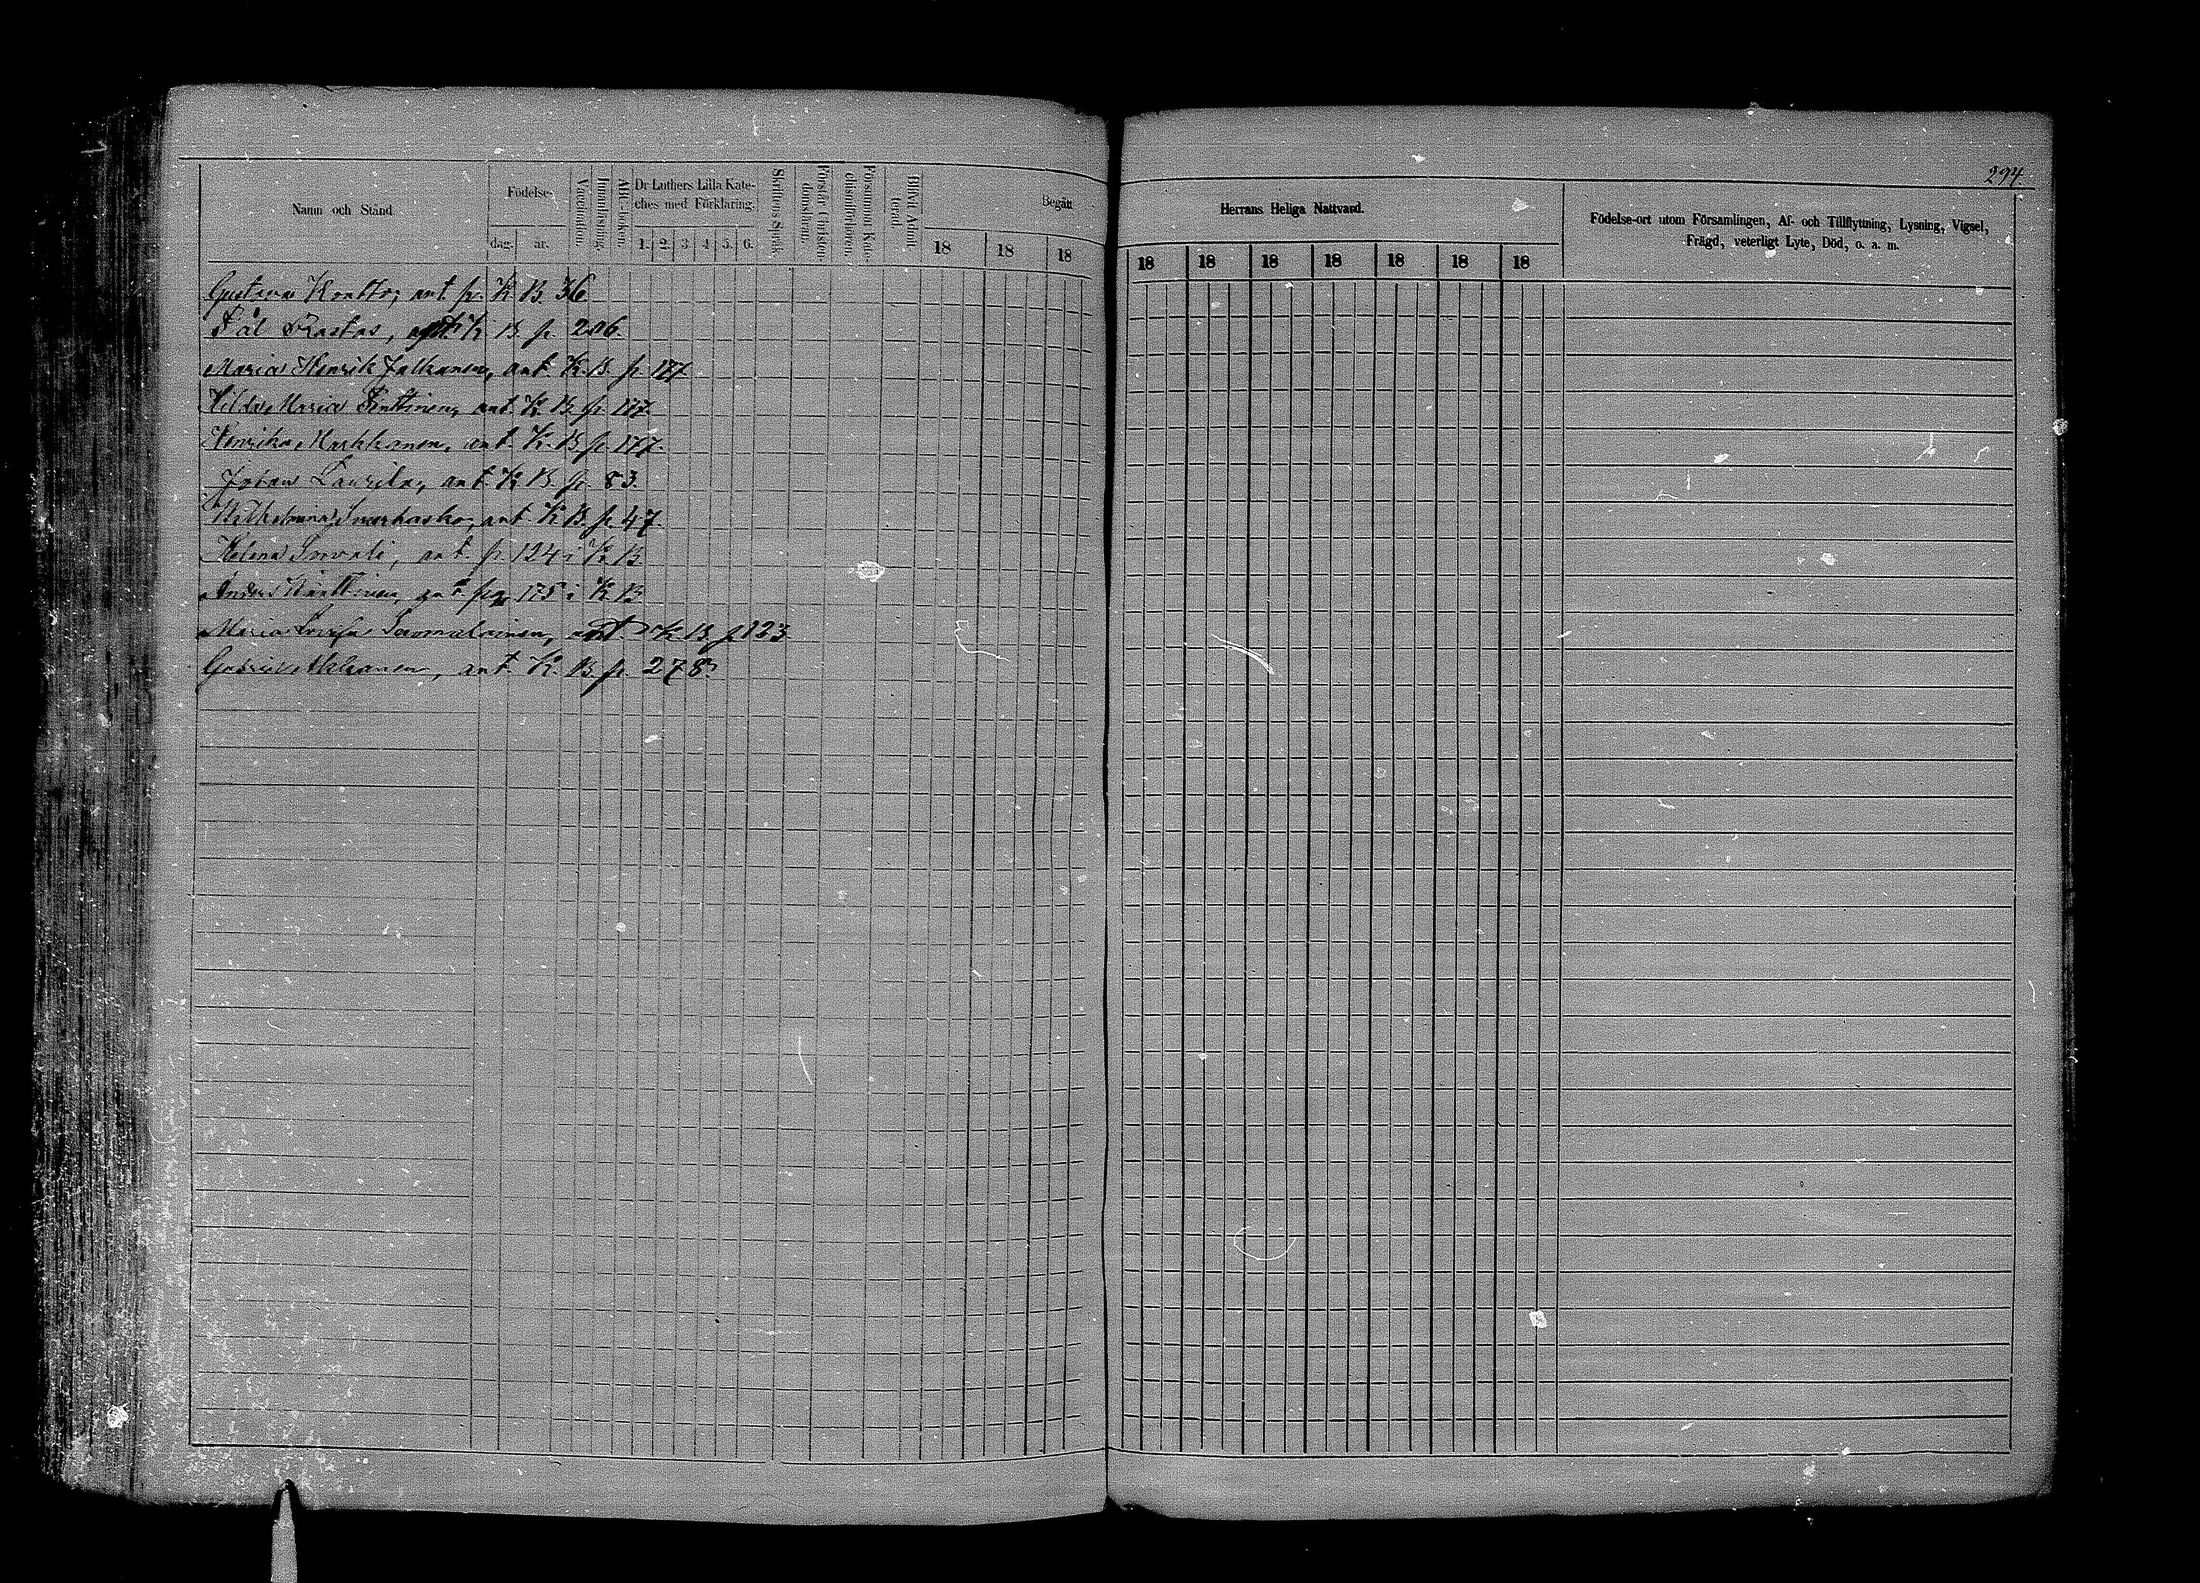 294.
Namn och Stånd
Födelse-
dag.
år.
Vaccination.
Innanläsning.
ABC-boken.
Dr Luthers Lilla Kate-
ches med Förklaring.
1. 2. 3. 4. 5. 6.
Skriftens Språk.
Förstår Christen-
domsläran.
Försummat Kate-
chismiförhören.
Blifvit Admit-
terad.
Begått
18 18 18
Herrans Heliga Nattvard.
18 18 18 18 18 18 18
Födelse-ort utom Församlingen, Af- och Tillflyttning, Lysning, Vigsel,
Frägd, veterligt Lyte, Död, o. a. m.
Gustava Kontto, ant. p. K B. 36.
Pål Raskas, ant. K B p. 206.
Maria Henrik Jalkanen, ant. K. B. p. 177
Hilda Maria Penttinen, ant. K. B. p. 177.
Henrika Markkanen, ant. K. B. p. 177.
Johan Laurila, ant. K B. p. 83.
Wilhelmina ant. K B. p. 47.
Helena ant. p. 124 i K B.
Anders ant. 175 i K B
Maria Lovisa Suomalainen, ant. K B. p 123
Gabriel ant. K. B. p. 278.